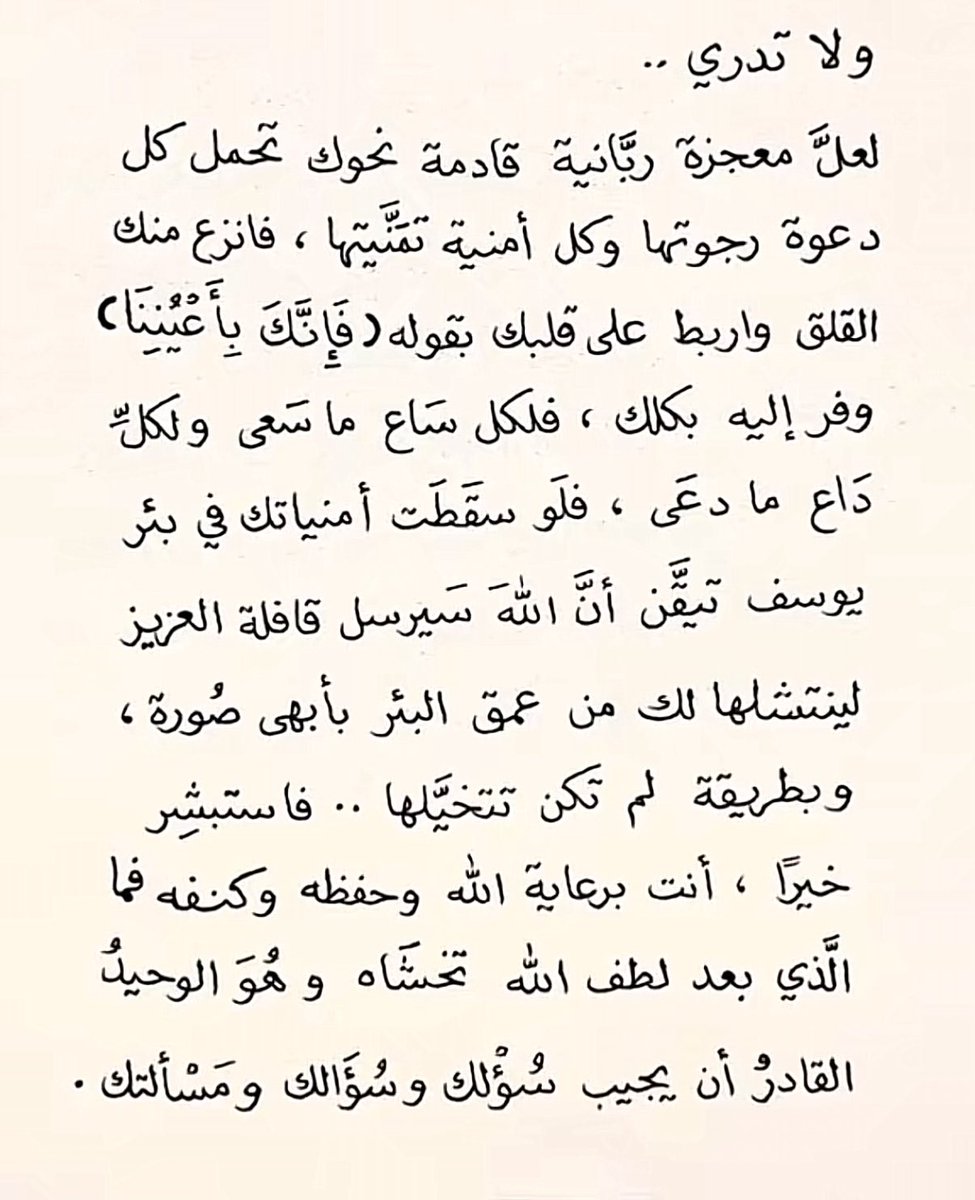 ولا تدري ..
لعلَّ معجزة ربَّانية قادمة نحوك تحمل كل
دعوة رجوتها وكل أمنية تمَنَّيتها ، فانزع منك
القلق واربط على قلبك بقوله (فَإِنَّكَ بِأَعْيُنِنَا)
وفر إليه بكلك ، فلكل سَاع ما سَعى ولكلِّ
دَاع ما دعَى ، فلَو سقَطَت أمنياتك في بئر
يوسف تيقَّن أنَّ اللهَ سَيرسل قافلة العزيز
لينتشلها لك من عمق البئر بأبهى صُورة ،
وبطريقة لم تكن تتخيَّلها .. فاستبشِر
خيرًا ، أنت برعاية الله وحفظه وكنفه فما
الَّذي بعد لطف الله تخشَاه وهُوَ الوحيدُ
القادرُ أن يجيب سُؤْلك وسُؤَالك ومَسْألتك .